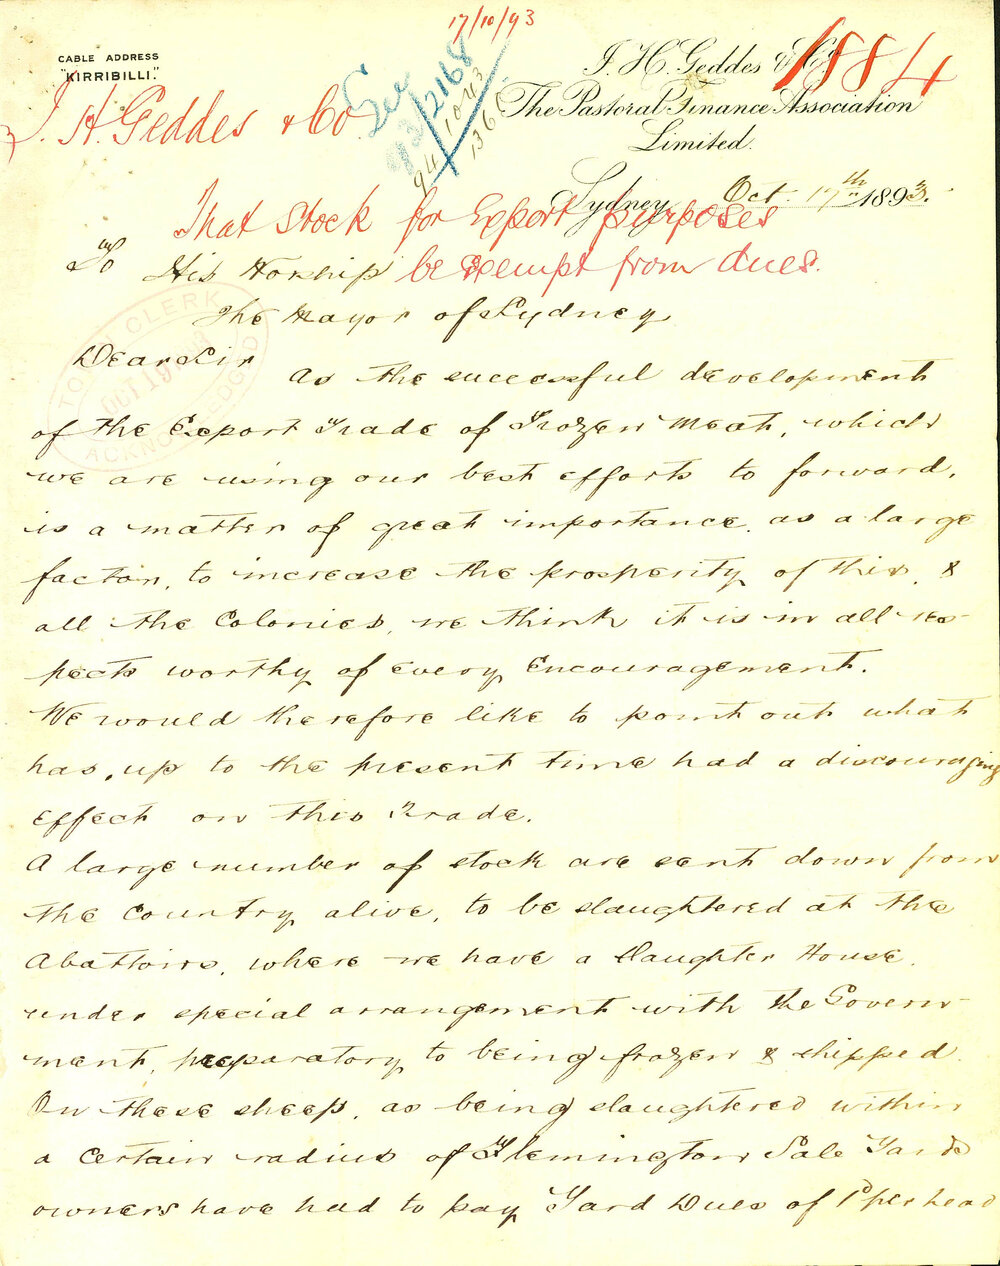 17/10/93
CABLE ADDRESS
"KIRRIBILLI."
J. H. Geddes & Co.
1884
The Pastoral Finance Association
Limited.
J. H. Geddes & Co
See
93/2168
94
1043
1360
Sydney, Oct. 17th 1893.
That Stock for Export purposes
be Exempt from dues.
To His Worship
The Mayor of Sydney
TOWN CLERK
OCT 19
ACKNOWLEDGED
Dear Sir
As the successful development
of the Export Trade of Frozen Meat, which
we are using our best efforts to forward,
is a matter of great importance, as a large
factor, to increase the prosperity of this, &
all the Colonies, we think it is in all res-
pects worthy of every Encouragement.
We would therefore like to point out what
has, up to the present time had a discouraging
effect on this Trade.
A large number of stock are sent down from
the Country alive, to be slaughtered at the
Abattoirs, where we have a Slaughter House,
under special arrangement with the Govern-
ment, preparatory to being frozen & shipped.
On these sheep, as being slaughtered within
a certain radius of Flemington Sale Yards
owners have had to pay Yard Dues of 1d per head